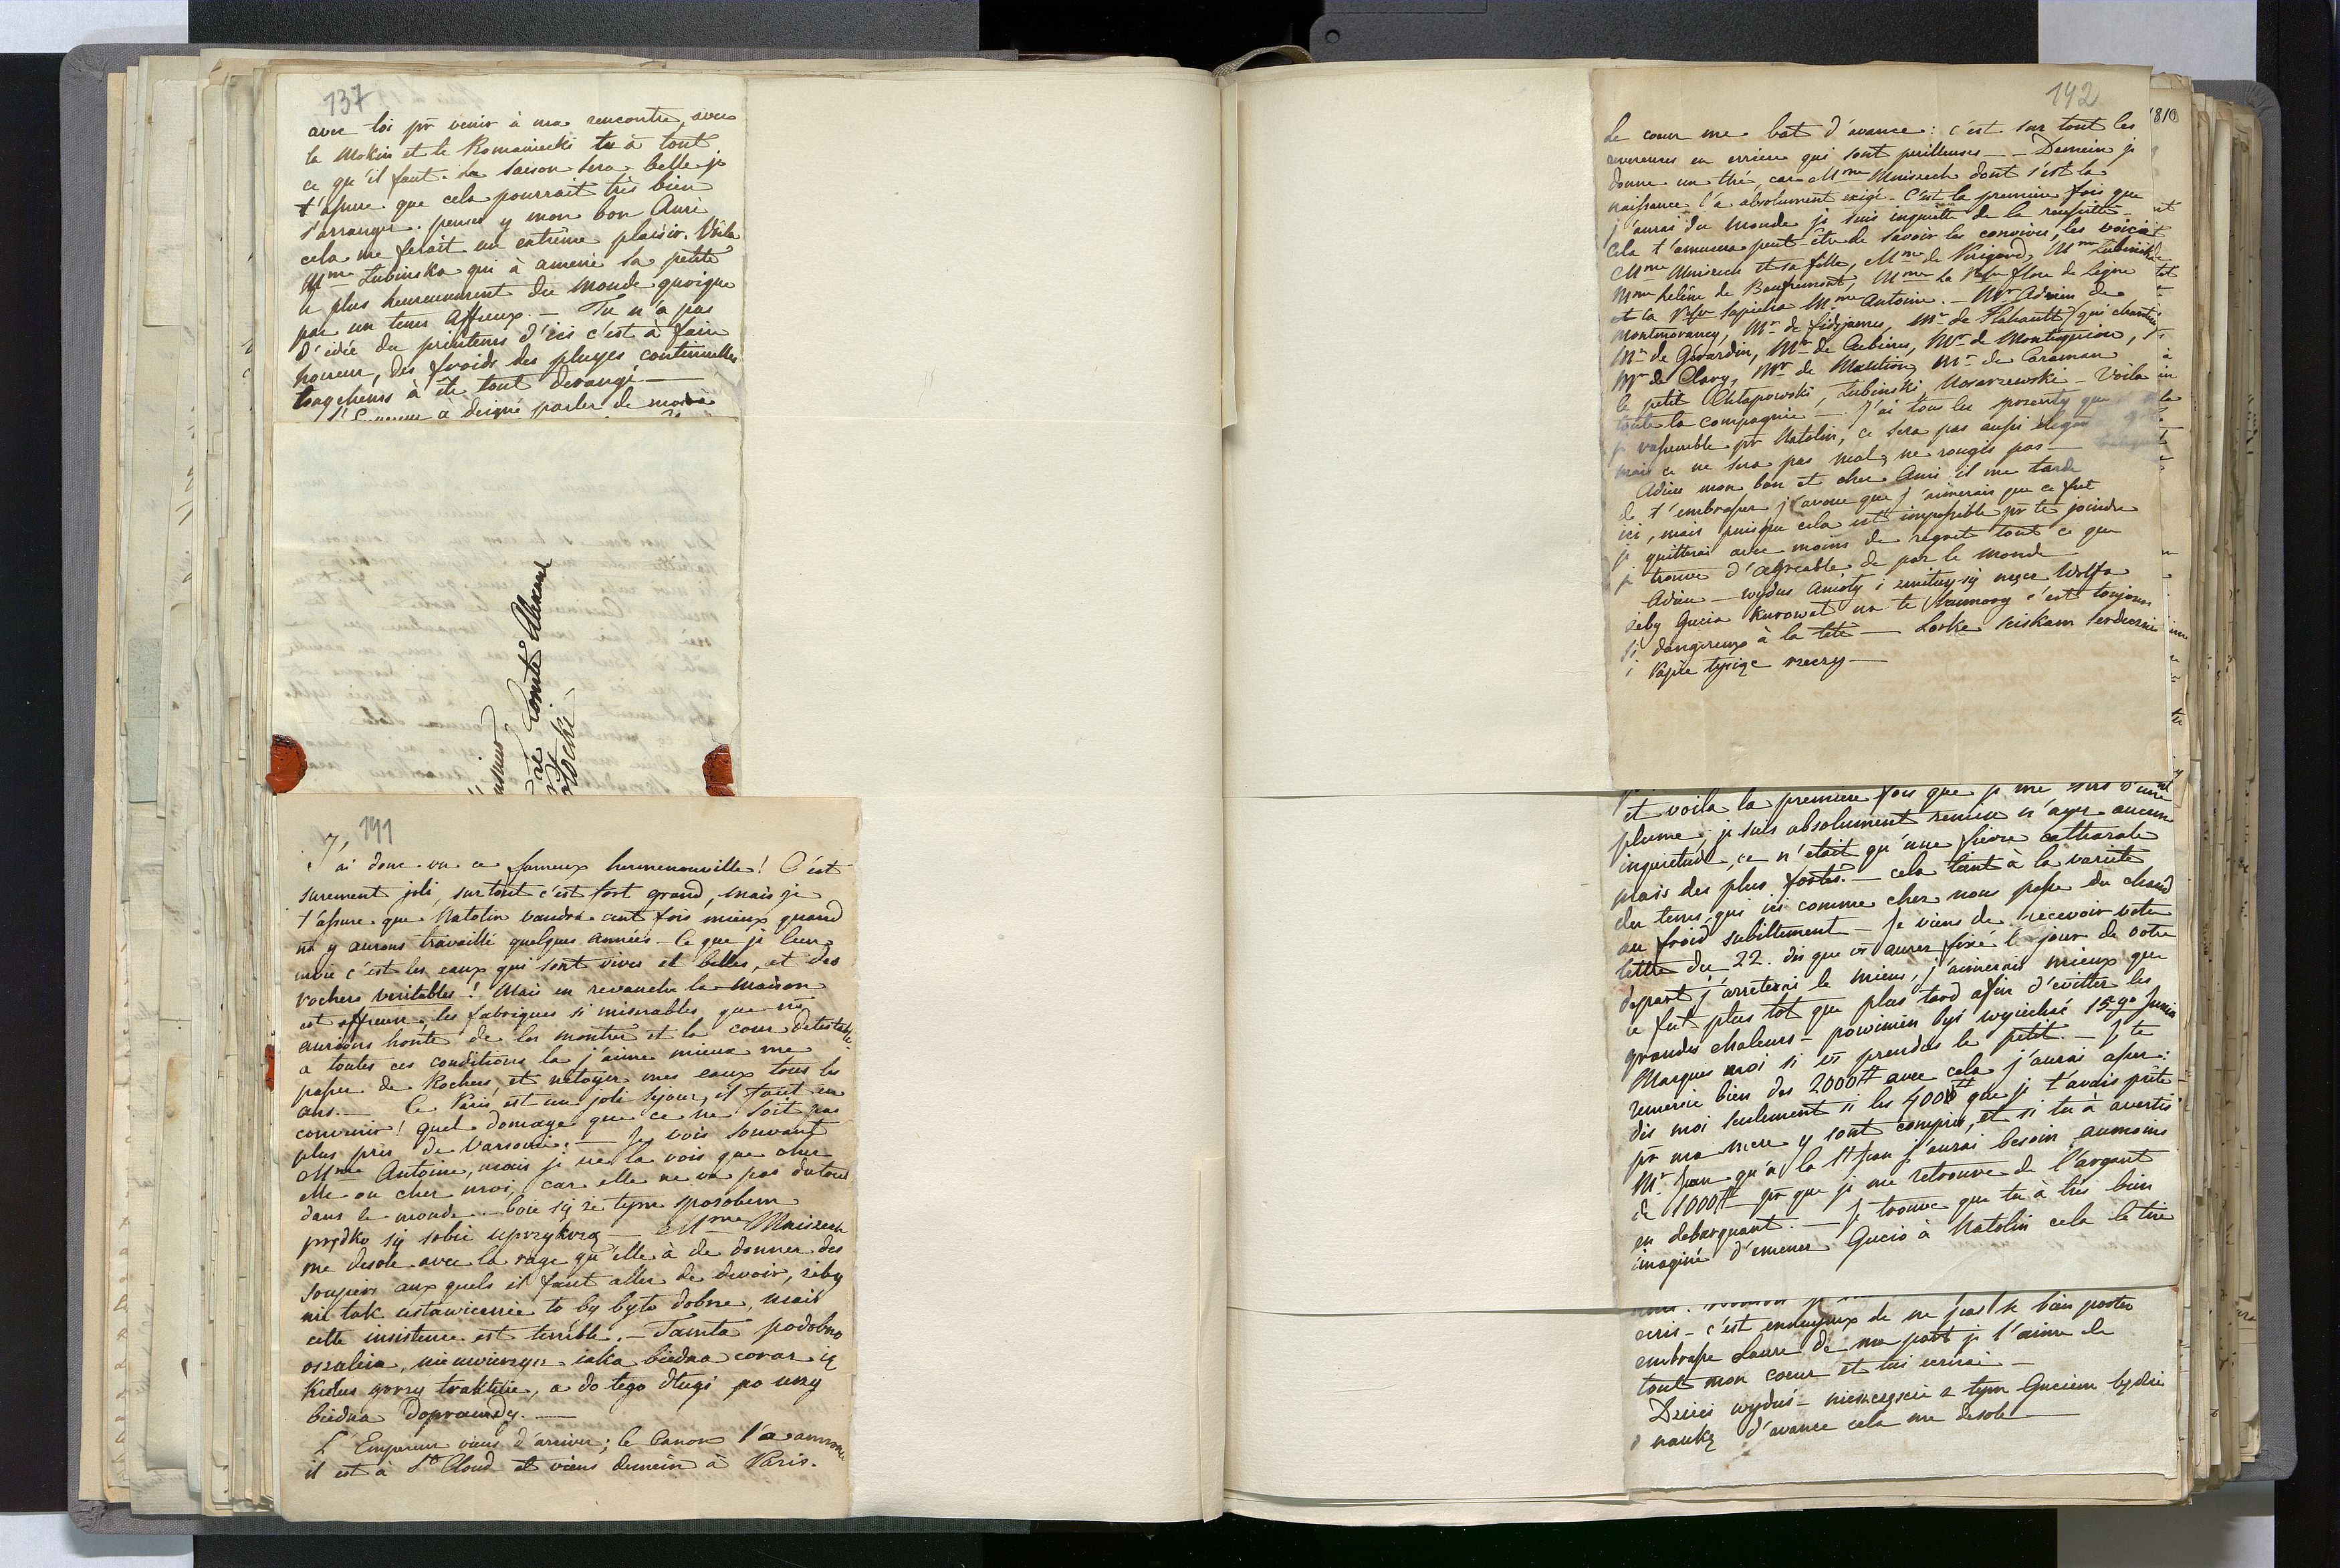 137
avec toi pr venir à ma rencontre, avec
la Mokin et le Romaniecki tu à tout
ce qu'il faut. La saison sera belle je
t'assure que cela pourrait très bien
s'arranger. penses y mon bon Ami
cela me ferait un extrême plaisir. Voila
Mme Łubinska qui à amené sa petite
le plus heureusement du monde quoique
par un tems affreux. — Tu n'a pas
d'idée du printems d'ici c'est à faire
horreur, des froids des pluyes continuelles
Longchems à été tout derangé —
l'Empereur a deigné parler de
Comte Alexandre
Potocki
141
J'ai donc vu ce fameux hermenonville! C'est
surement joli, surtout c'est fort grand, mais je
t'assure que Natolin vaudra cent fois mieux quand
ns y aurons travaillé quelques Années — Ce que je leur
envie c'est les eaux qui sont vives et belles, et des
rochers veritables! Mais en revanche la maison
est affreuse, les fabriques si miserables que ns
aurions honte de les montrer et la cour detestable.
a toutes ces conditions la j'aime mieux me
passer de Rochers, et netoyer mes eaux tous les
ans. — Ce Paris est un joli sejour, il faut en
convenir! quel domage que ce ne soit pas
plus près de Varsovie. — Je vois souvant
Mme Antoine, mais je ne la vois que chez
elle ou chez moi, car elle ne va pas du tout
dans le monde — boie się że tym sposobem
prędko się sobie uprzykrzą — Mme Mniszech
me desole avec la rage qu'elle à de donner des
soupers aux quels il faut aller de devoir, żeby
nie tak ustawicznie to by było dobrze, mais
cette insistence est terrible. — Tamta podobno
oszaleia, nie uwierzysz iaka biedna coraz ią
Kulus gorzy traktuie, a do tego długi po uszy
biedna doprawdy. —
L'Empereur viens d'arriver; le Canon l'a annoncé
il est à St Cloud et viens demein à Paris.
142
1810
le cœur me bat d'avance: c'est sur tout les
reverences en arriere qui sont perilleuses — Demein je
donne un thé, car Mme Mniszech dont s'est la
naissance l'a absolument exigé. C'est la premiere fois que
j'aurai du monde je suis inquiette de la reussitte —
Cela t'amusera peut-être de savoir les convives, les voici
Mme Mniszech et sa fille, Mme de Perigord, Mme Łubinska
Mme helène de Baufremont, Mme la Psse flore de Ligne
et la Psse Sapieha Mme Antoine. — Mr Adrien de
Montmorancy, Mr de fidzjames, Mr de Flahautt (qui chantera
Mr de Gérardin, Mr de Cubieres, Mr de Montesquiou,
Mr de Clary, Mr de Mattion, Mr de Caraman
le petit Chłapowski, Łubinski Mosarzewski — Voila
toute la compagnie — J'ai tous les
je rassemble pr Natolin, ce sera pas aussi
mais ce ne sera pas mal, ne rougis pas —
Adieu mon bon et cher Ami il me tarde
de t'embrasser j'avoue que j'aimerais que ce fut
ici, mais puisque cela est impossible pr te joindre
je quitterai avec moins de regret tout ce que
je trouve d'agreable de par le monde
Adieu — wydus Anioły i zmituy się męcz Wolfa
żeby Gucia kurował na te s'est toujours
si dangereux à la tete — Lorke sciskam serdecznie
i Papie tysiąc rzeczy —
et voila la premiere fois que je me sers d'une
plume. je suis absolument remise n'ayes aucune
inquietude, ce n'était qu'une fievre catharale
mais des plus fortes. — cela tient à la varieté
du tems, qui ici comme chez nous passe du chaud
au froid subittement — Je viens de recevoir votre
lettre du 22. dès que vs aurez fixé le jour de votre
depart j'arreterai le mien, j'aimerais mieux que
ce fut plus tot que plus tard afin d'evitter les
grandes chaleurs — powinien być wyiechać 15go Junia
Marques moi si vs prendes le petit. — Je te
remercie bien des 2000# avec cela j'aurai assez:
dis moi seulement si les 400# que je t'avais prété
pr ma mere y sont compris, et si tu à avertis
Mr Jean qu'à la St Jean j'aurai besoin aumoins
de 1000# pr que je me retrouve de l'argent
en debarquant. — Je trouve que tu à très bien
imaginé d'emener Gucio à Natolin cela le tire
ecris — c'est ennuyeux de ne pas se bien porter
embrasse Laure de ma part je l'aime de
tout mon cœur et lui ecrirai —
Dzieci wyduś — nieszczęscie z tym Guciem będzie
z nauką d'avance cela me desole —